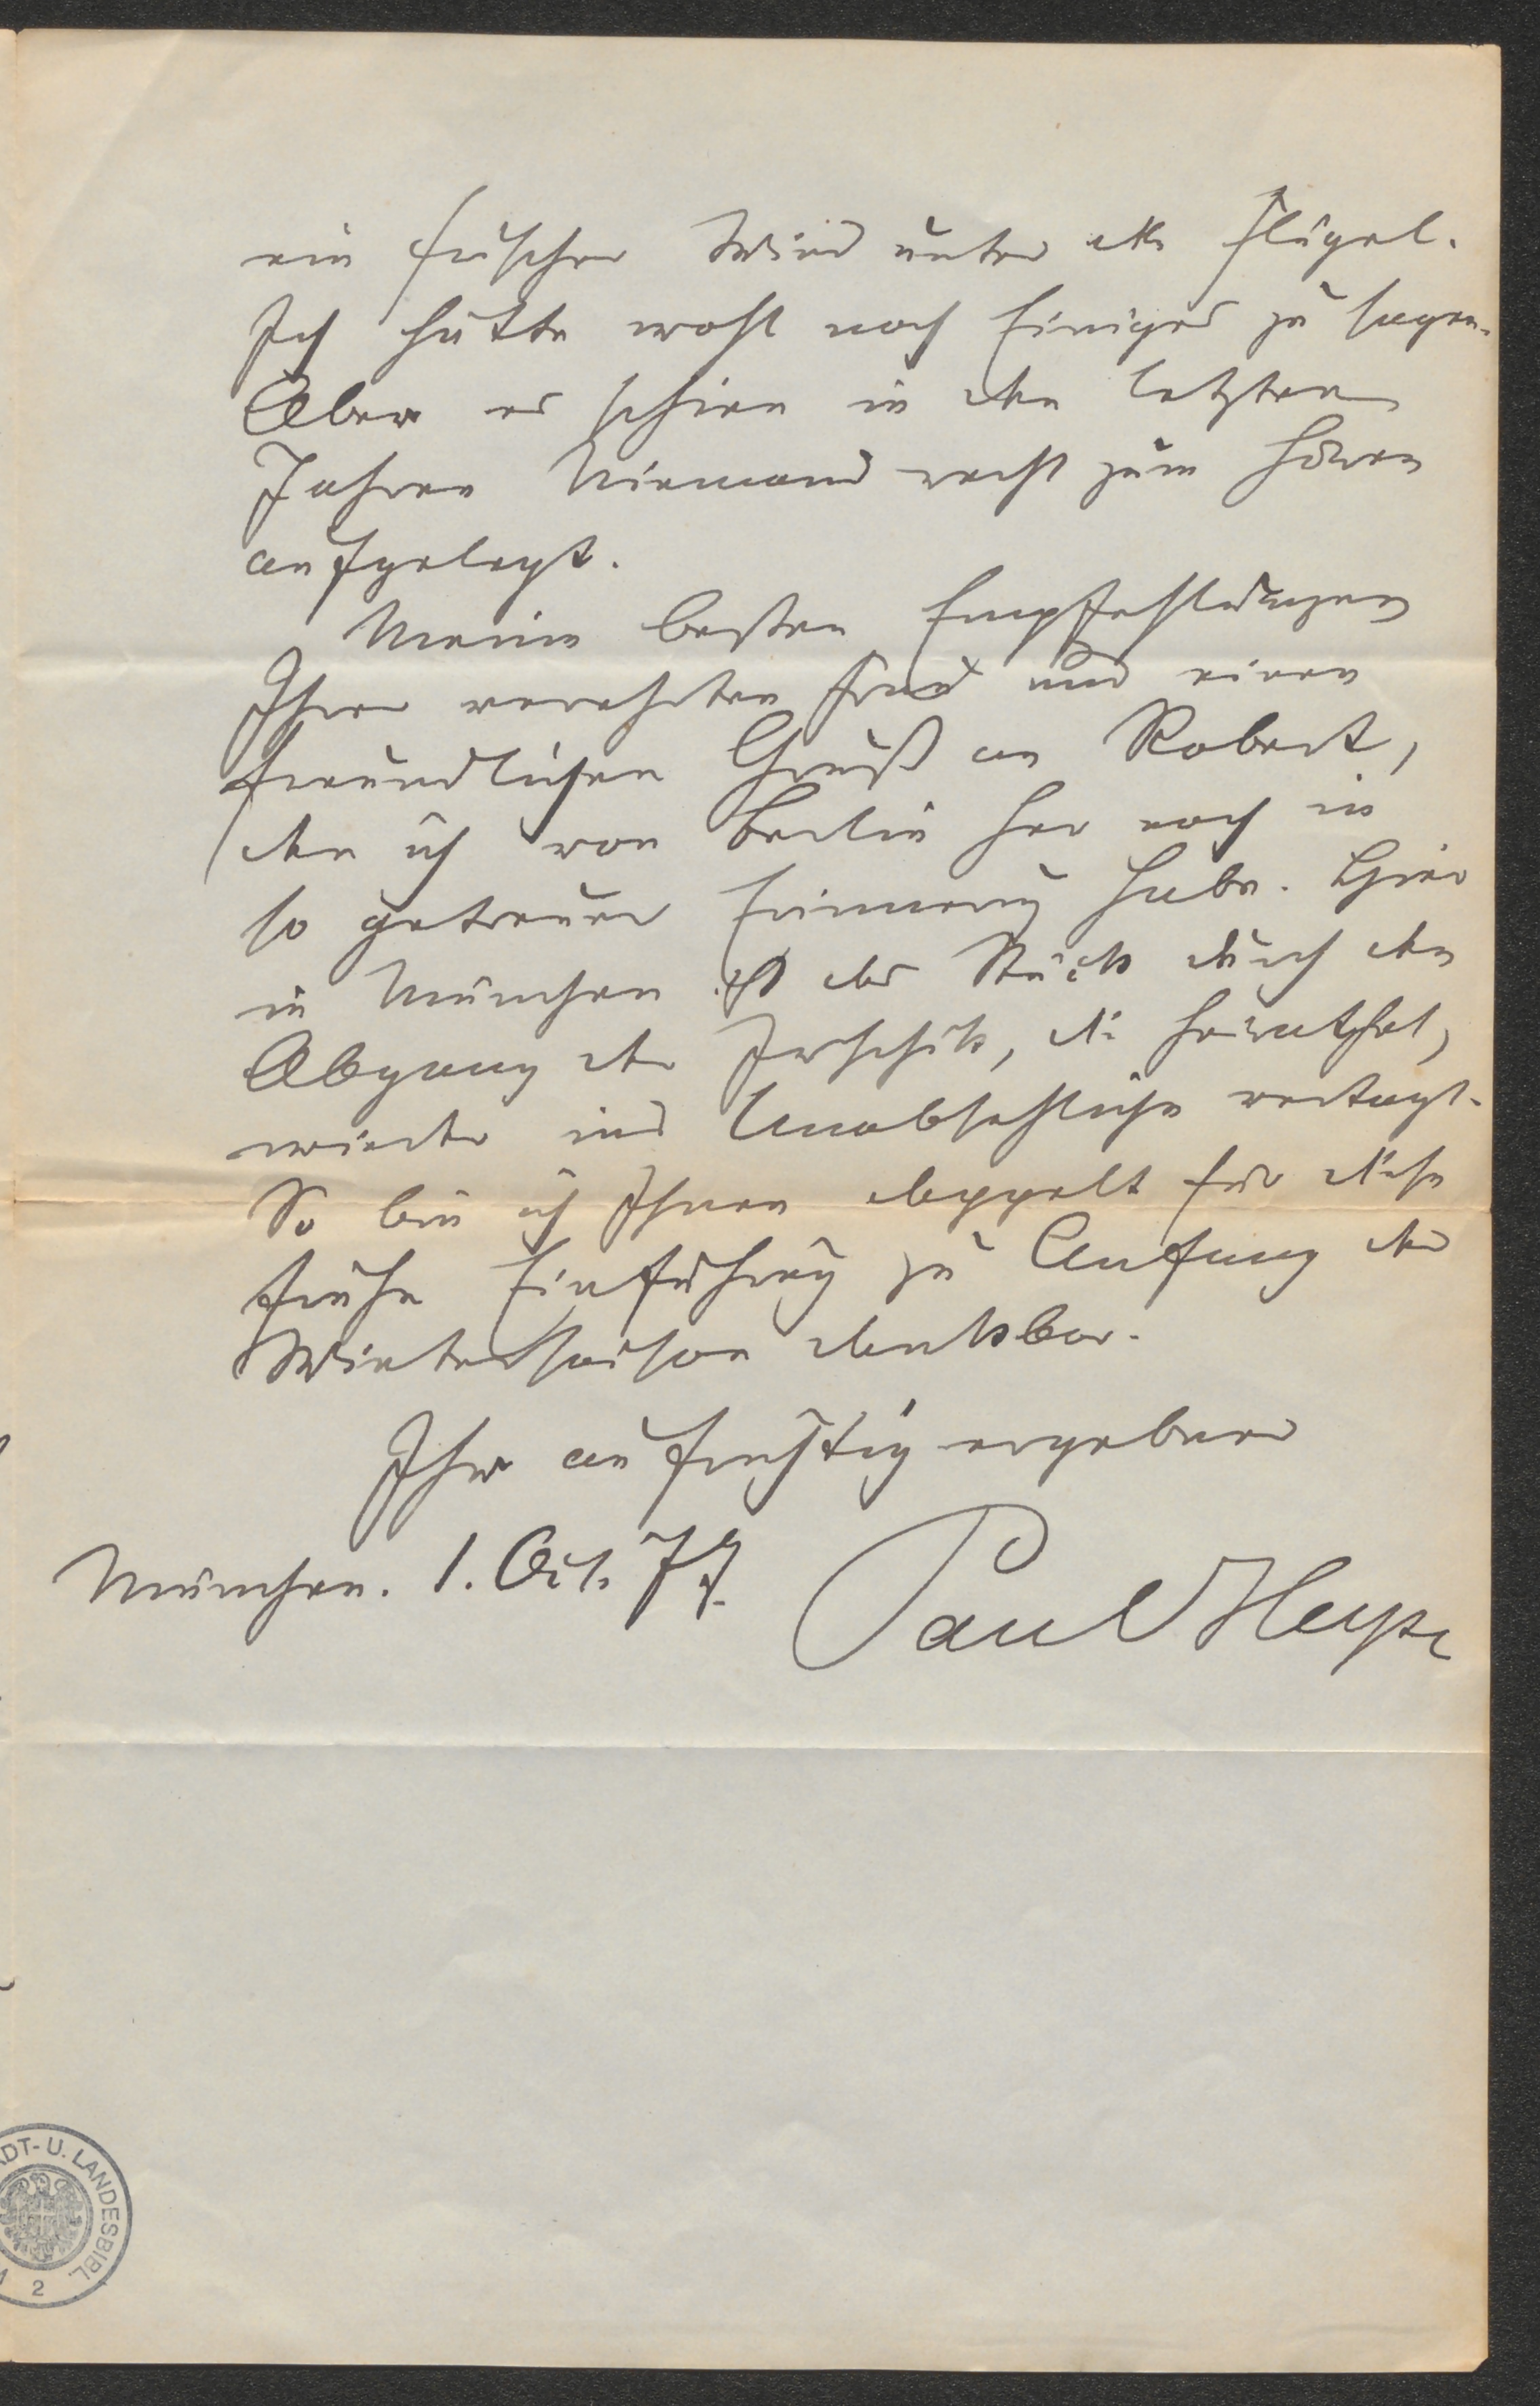 ein frischer Wind unter die Flügel.
Ich hätte wohl noch Einiges zu sagen.
Aber es schien in den letzten
Jahren Niemand recht zum Hören
aufgelegt.
Meine besten Empfehlungen
Ihrer verehrten Frau und einen
freundlichen Gruß an Robert,
den ich von Berlin her noch in
so getreuer Erinnerung habe. Hier
in München ist das Stück durch den
Abgang der Jrschik, die heirathet,
wieder ins Unabsehliche vertagt.
So bin ich Ihnen doppelt für diese
frühe Einführung zu Anfang der
Wintersaison dankbar.
Ihr aufrichtig ergebener
München. 1. Oct. 77.
Paul Heyse
DT- U. LANDESBIBL.
2